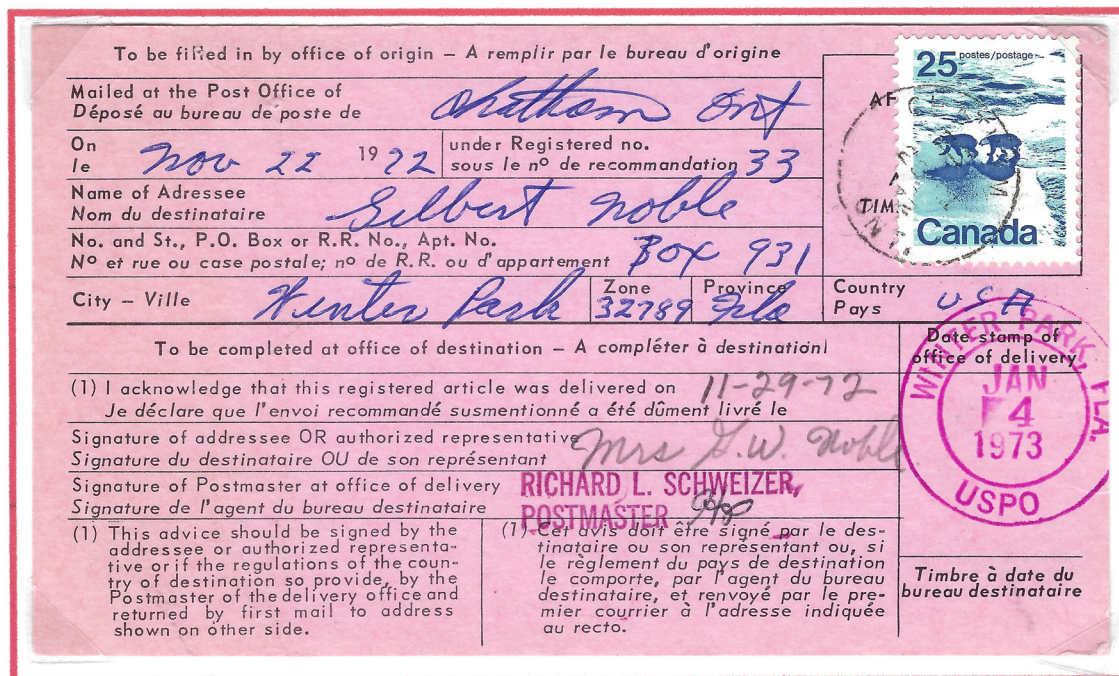 To be filled in by office of origin – A remplir par le bureau d'origine
Mailed at the Post Office of
Déposé au bureau de poste de
Chatham Ont
On
le
Nov 22 1972
under Registered no.
sous le nº de recommandation 33
Name of Adressee
Nom du destinataire
Gilbert Noble
No. and St., P.O. Box or R.R. No., Apt. No.
Nº et rue ou case postale; nº de R.R. ou d'appartement
Box 931
City – Ville
Winter Park
Zone
32789
Province
Fla
Country
Pays
USA
AF
TIM
25 postes/postage
Canada
To be completed at office of destination – A compléter à destination
(1) I acknowledge that this registered article was delivered on
Je déclare que l'envoi recommandé susmentionné a été dûment livré le
11-29-72
Signature of addressee OR authorized representative
Signature du destinataire OU de son représentant
Mrs G.W. Noble
Signature of Postmaster at office of delivery
Signature de l'agent du bureau destinataire
RICHARD L. SCHWEIZER,
POSTMASTER
Date stamp of
office of delivery
WINTER PARK, FLA.
JAN
4
1973
USPO
Timbre à date du
bureau destinataire
(1) This advice should be signed by the
addressee or authorized representa-
tive or if the regulations of the coun-
try of destination so provide, by the
Postmaster of the delivery office and
returned by first mail to address
shown on other side.
(1) Cet avis doit être signé par le des-
tinataire ou son représentant ou, si
le règlement du pays de destination
le comporte, par l'agent du bureau
destinataire, et renvoyé par le pre-
mier courrier à l'adresse indiquée
au recto.